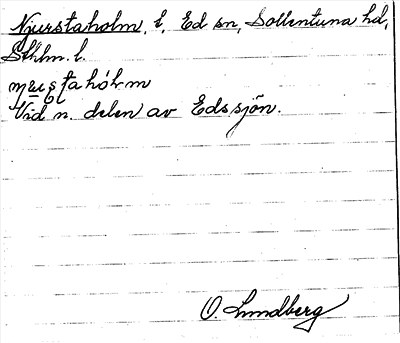 Njurstaholm, l, Ed sn, Sollentuna hd,
Sthlm. l.
Vid n. delen av Edssjön.
O. Lundberg